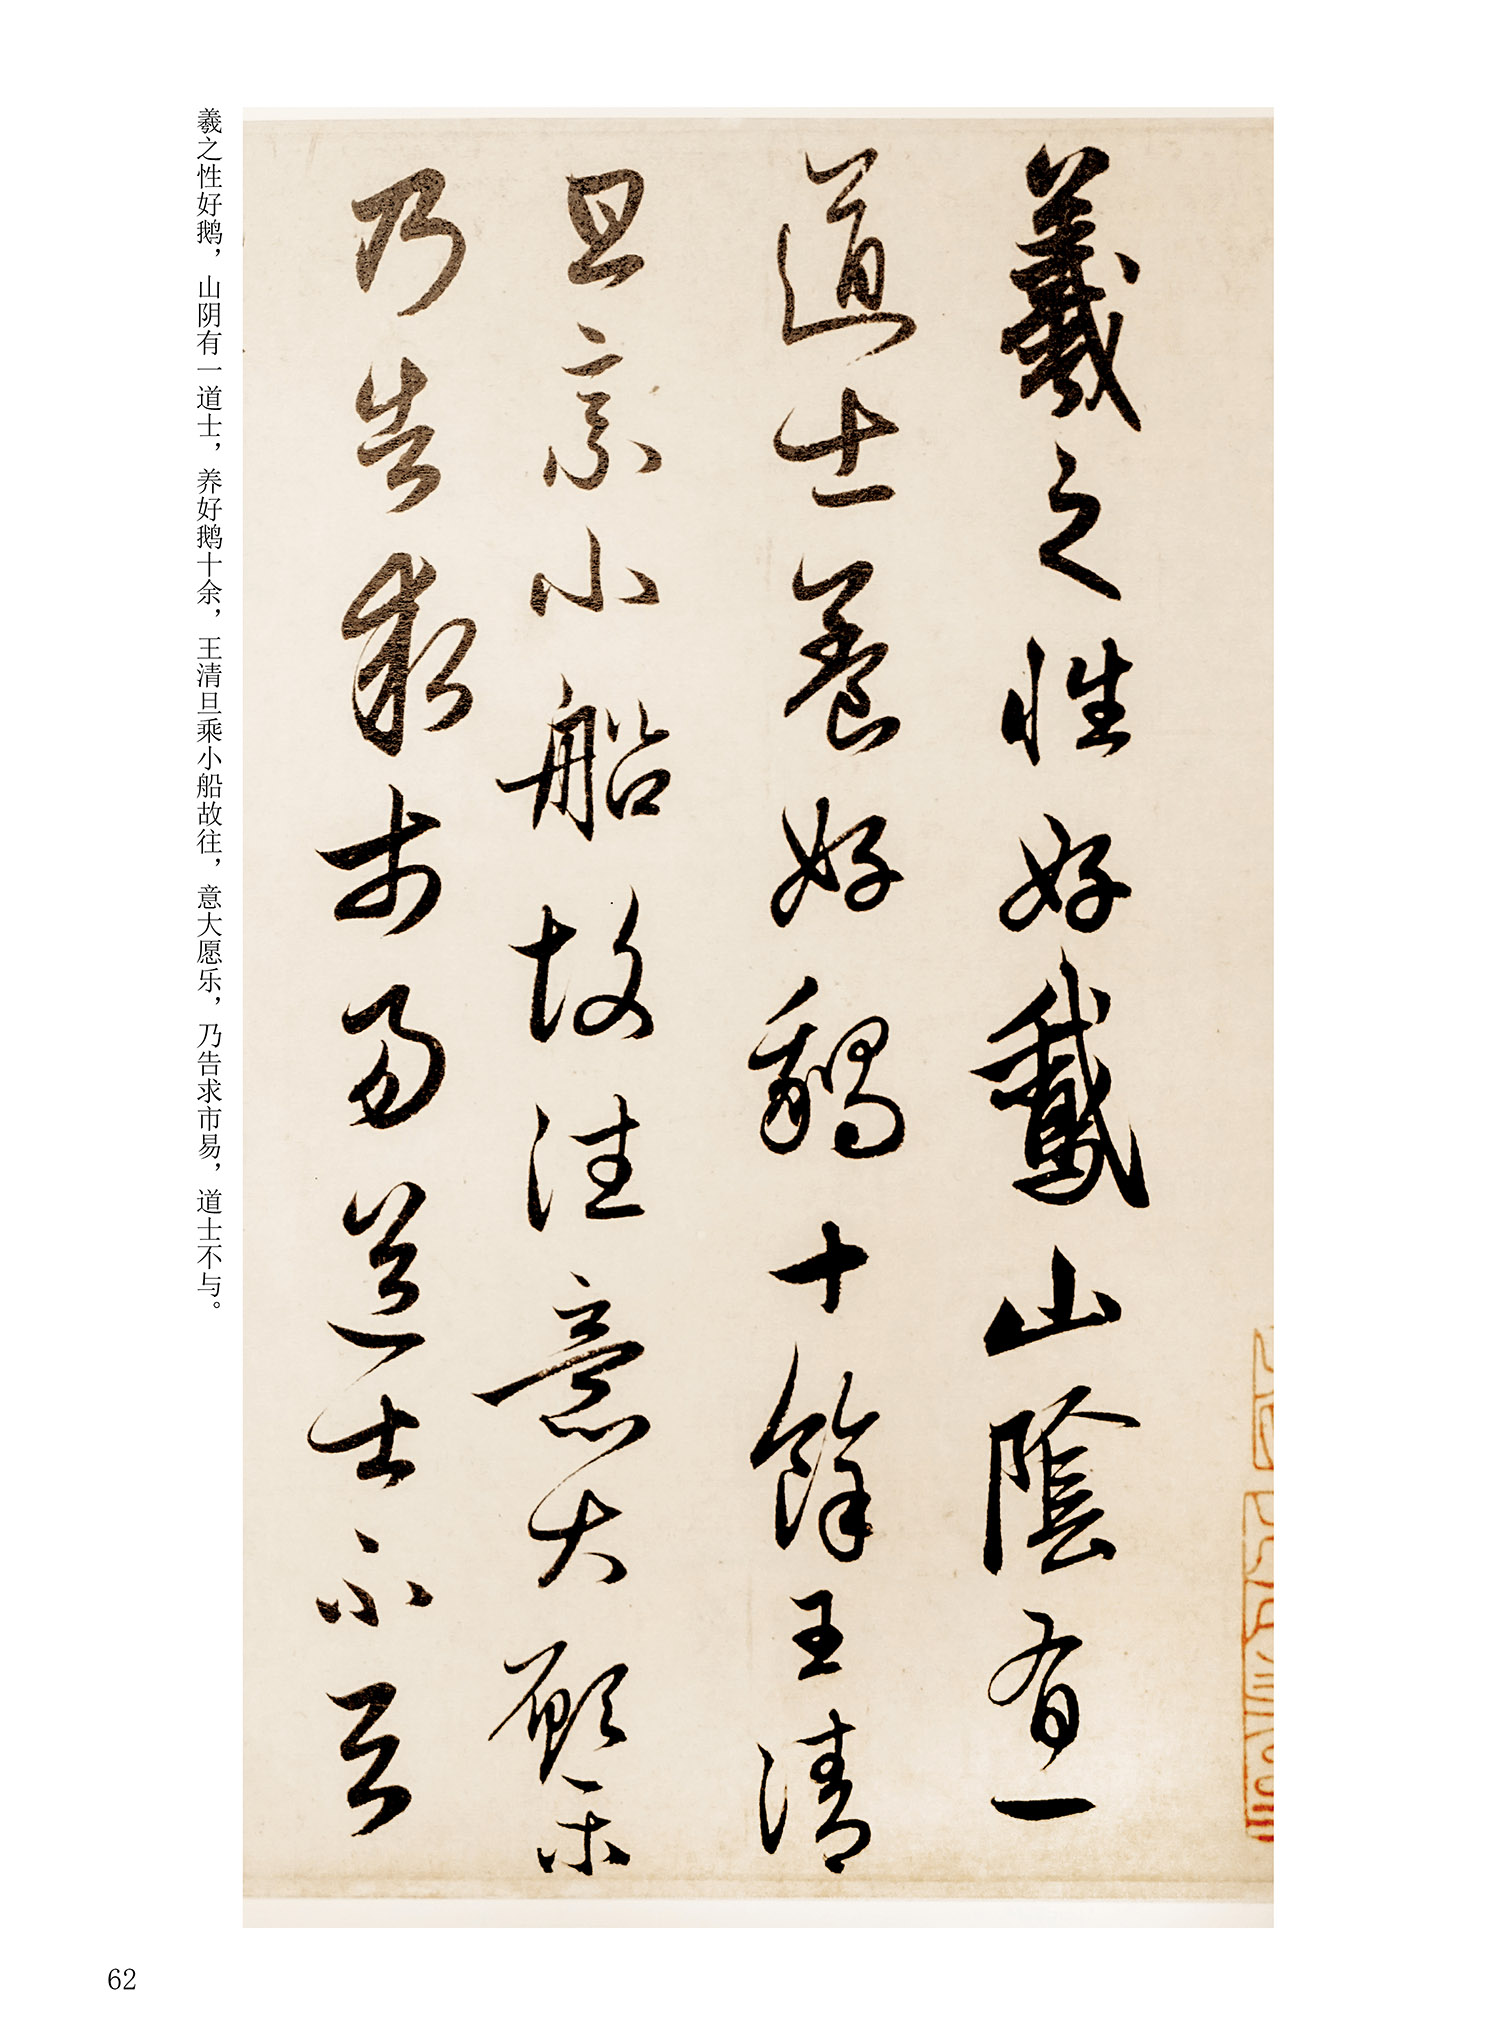 羲之性好鵞山陰有一
道士養好鵝十餘王清
旦乘小船故往意大願樂
乃告求市易道士不与
羲之性好鹅，山阴有一道士，养好鹅十余，王清旦乘小船故往，意大愿乐，乃告求市易，道士不与。
62